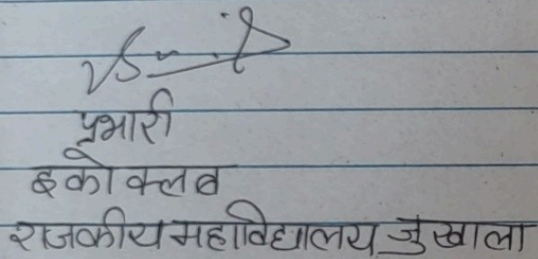 प्रभारी
इको क्लब
राजकीय महाविद्यालय जुखाला